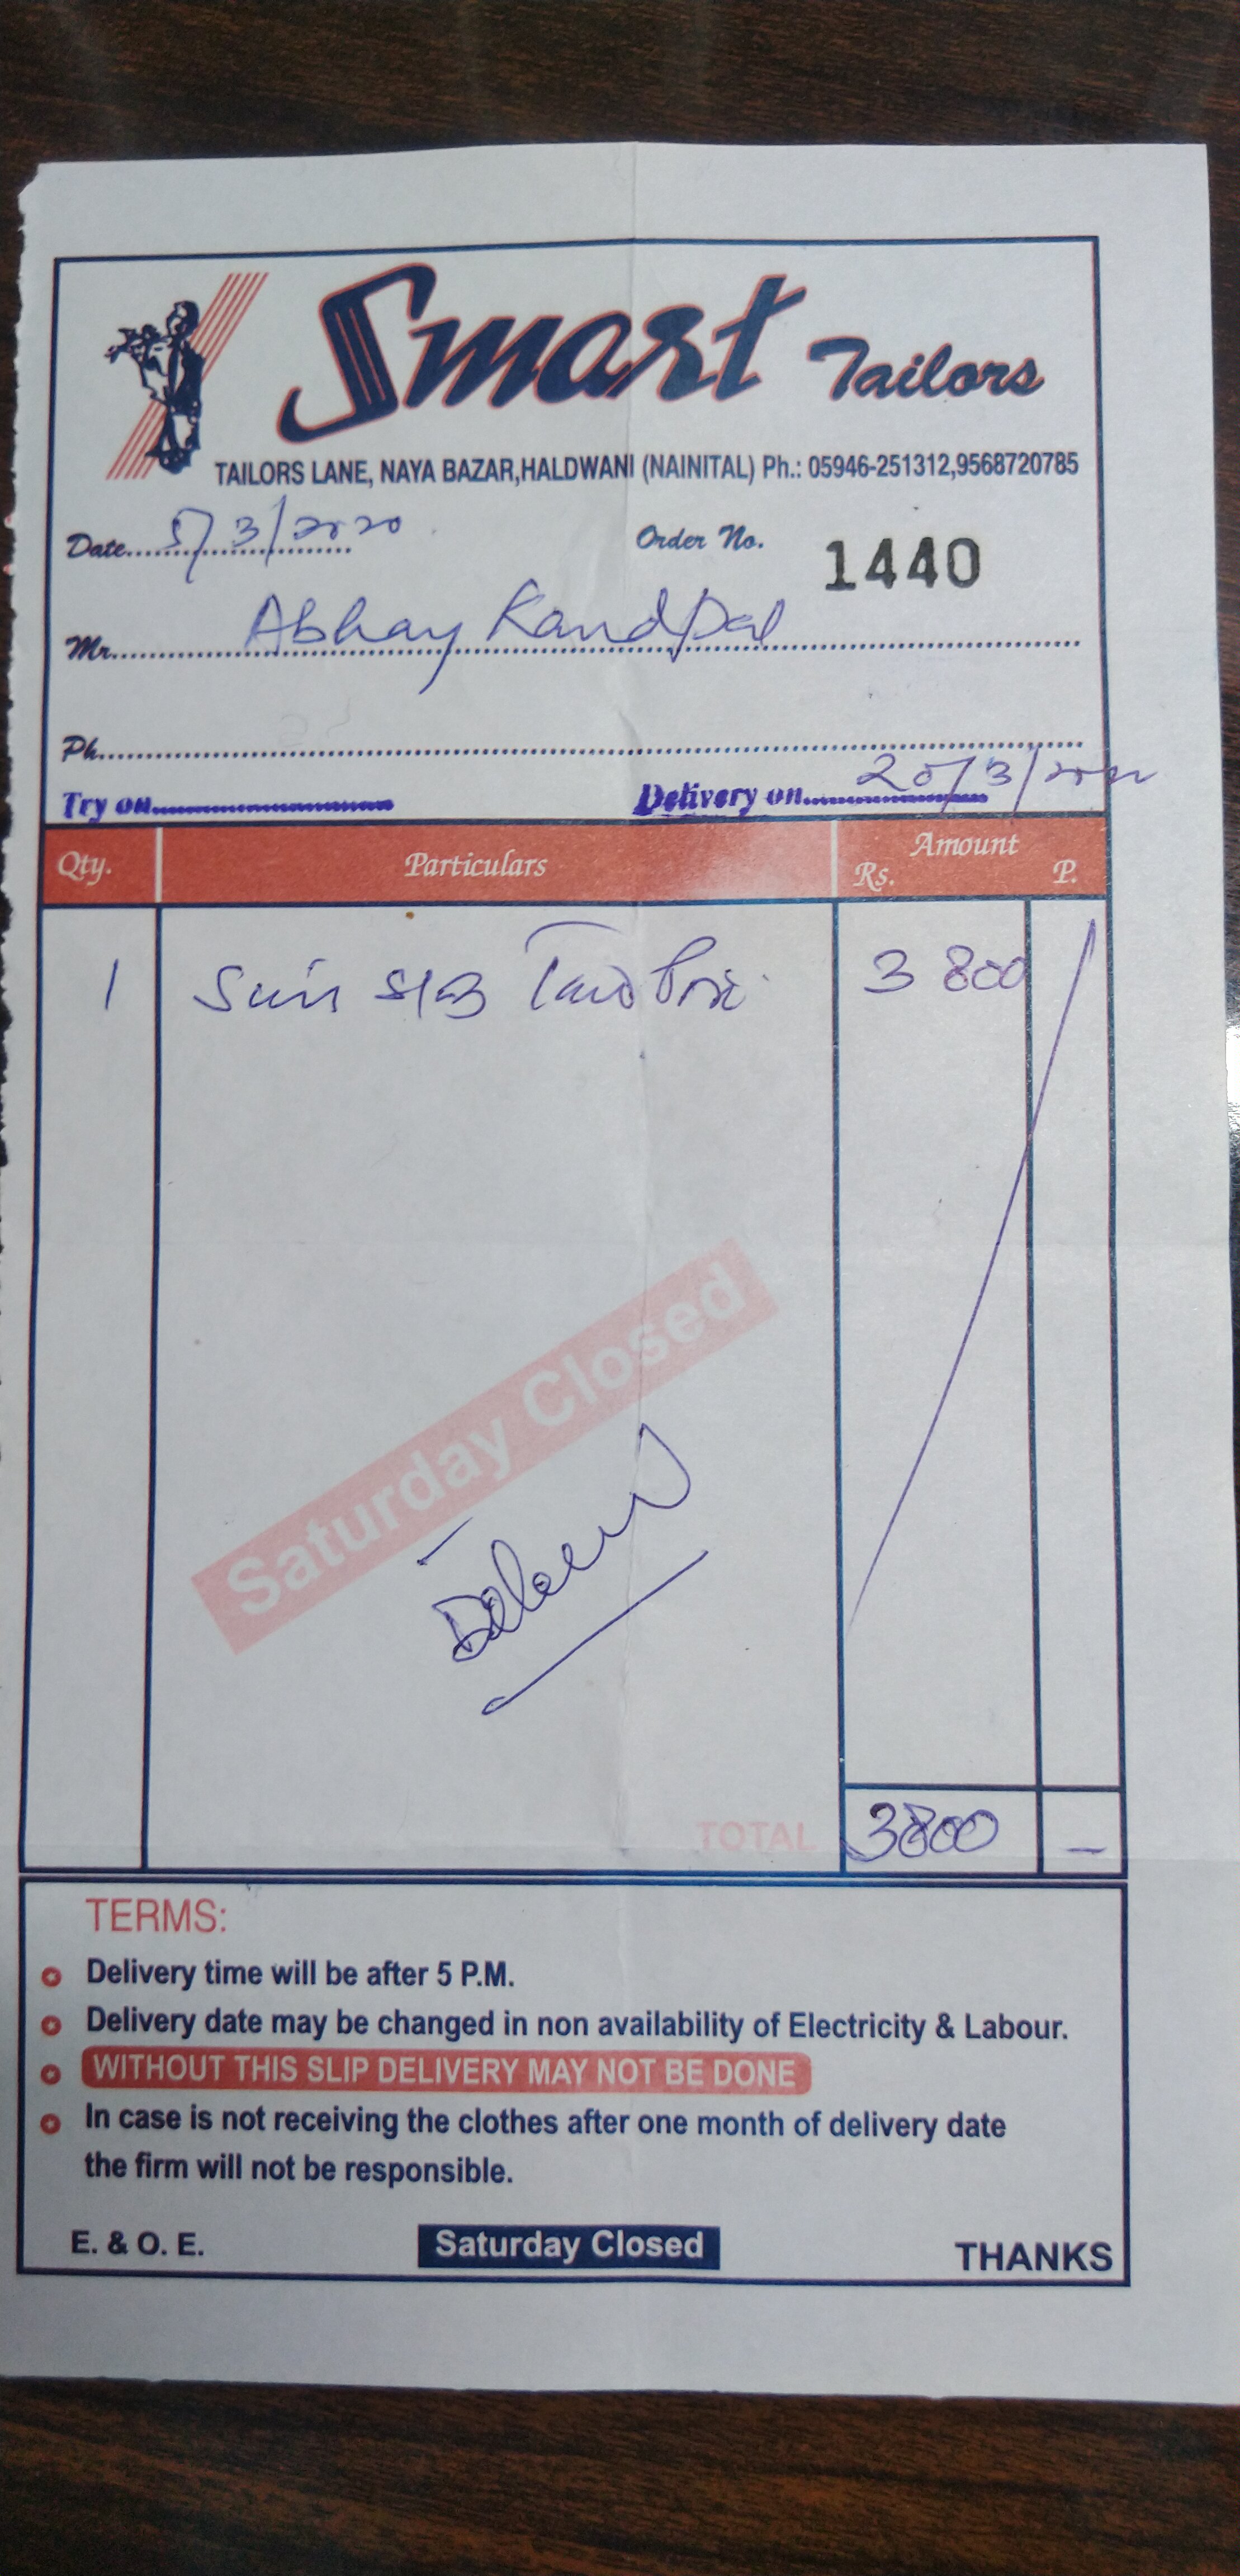 Smart Tailors
TAILORS LANE, NAYA BAZAR,HALDWANI (NAINITAL) Ph.: 05946-251312,9568720785
Date 5/3/2020 Order No. 1440
Mr. Abhay Kandpal
Ph.
Try on Delivery on 20/3/
Qty. Particulars Amount
Rs. P.
1 3800
Saturday Closed
TOTAL 3800 –
TERMS:
Delivery time will be after 5 P.M.
Delivery date may be changed in non availability of Electricity & Labour.
WITHOUT THIS SLIP DELIVERY MAY NOT BE DONE
In case is not receiving the clothes after one month of delivery date
the firm will not be responsible.
E. & O. E. Saturday Closed THANKS